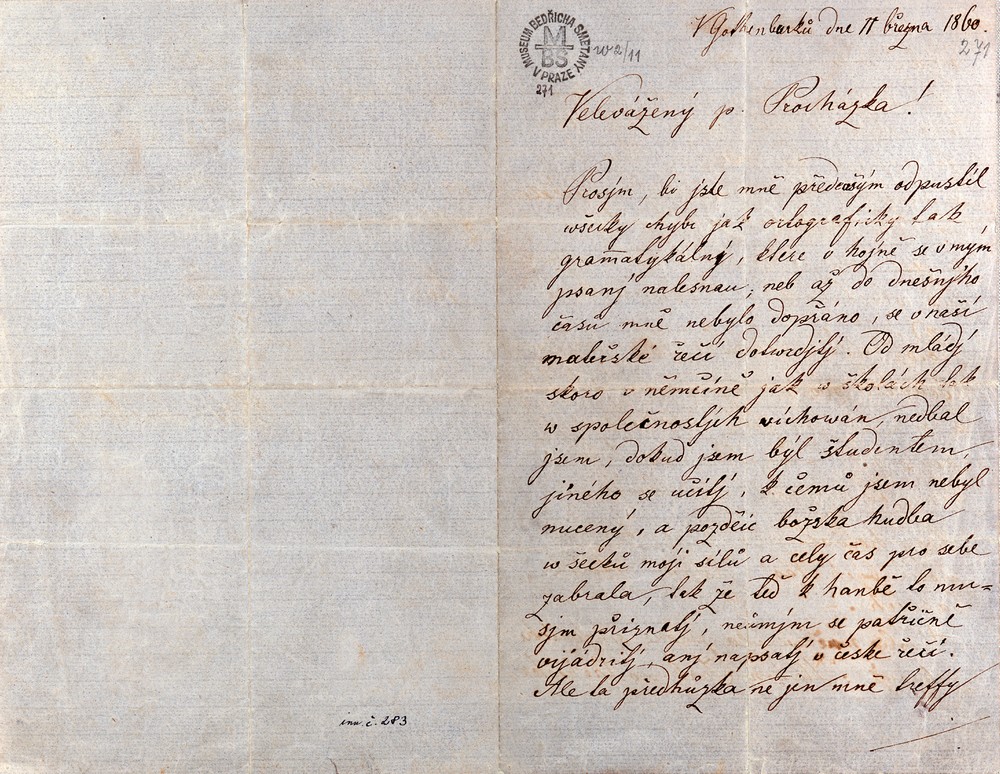 MUSEUM BEDŘICHA SMETANY V PRAZE
MBS
271
w 2/11
V Gothenburků dne 11 března 1860.
271
Velevážený p. Procházka!
Prosjm, bi jste mně předewšým odpustil
wšecky chybi jak ortograficky tak
gramatykálný, ktere v hojně se v mým
psanj nalesnau; neb až do dnešnjho
časů mně nebylo dopřáno, se v naší
mateřské řečí dotwrdjtj. Od mládj
skoro v němčině jak w školách tak
w společnostjch vichowán, nedbal
jsem, dokud jsem býl študentem,
jiného se učitj, k čemů jsem nebyl
nucený, a pozděic božska hudba
wšecků moji sílů a cely čas pro sebe
zabrala, tak že teď k hanbě to mu=
sjm přiznatj, neůmjm se patřičně
vijádřitj, anj napsatj v česke řečí.
Ale ta předhůzka ne jen mně treffy
inv. č. 283